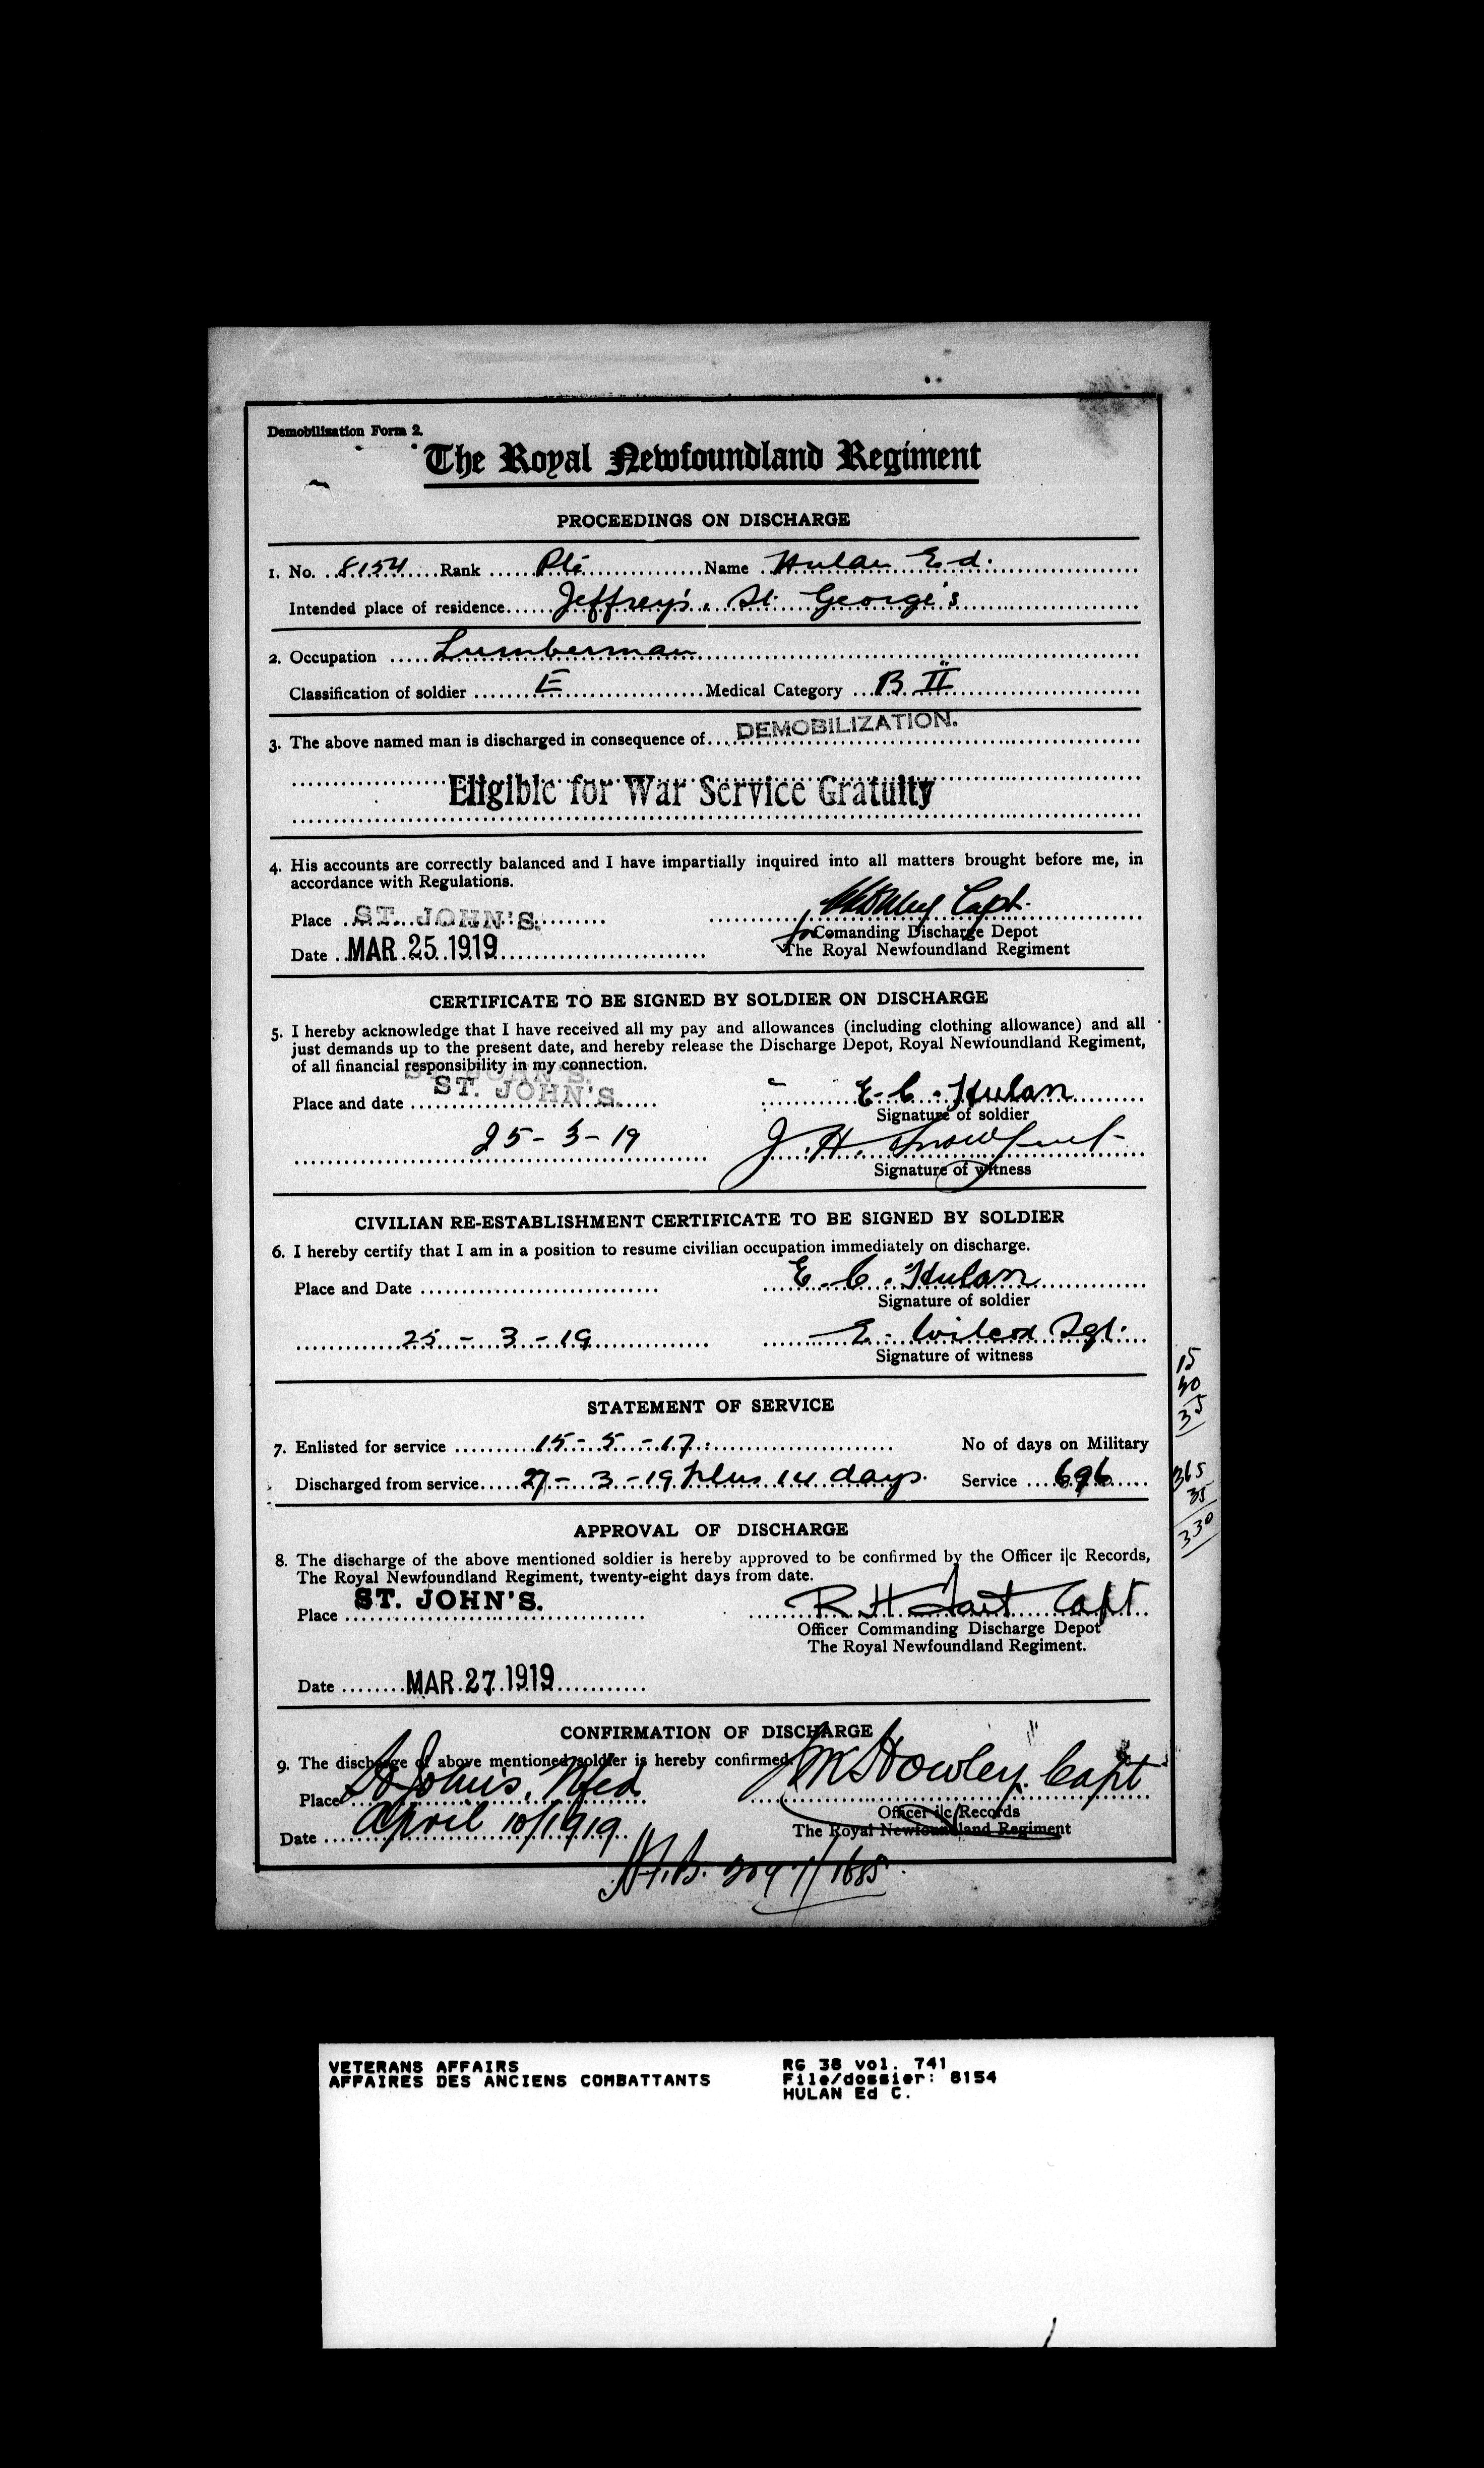 Demobilization Form 2.
The Royal Newfoundland Regiment
PROCEEDINGS ON DISCHARGE
1. No. 8154 Rank Pte Name Hulan Ed.
Intended place of residence Jeffrey's, St. George's
2. Occupation Lumberman
Classification of soldier E Medical Category B II
3. The above named man is discharged in consequence of DEMOBILIZATION.
Eligible for War Service Gratuity
4. His accounts are correctly balanced and I have impartially inquired into all matters brought before me, in
accordance with Regulations.
Place ST. JOHN'S. Capt.
for Comanding Discharge Depot
Date MAR 25 1919 The Royal Newfoundland Regiment
CERTIFICATE TO BE SIGNED BY SOLDIER ON DISCHARGE
5. I hereby acknowledge that I have received all my pay and allowances (including clothing allowance) and all
just demands up to the present date, and hereby release the Discharge Depot, Royal Newfoundland Regiment,
of all financial responsibility in my connection.
ST. JOHN'S.
Place and date ST. JOHN'S. E. C. Hulan
Signature of soldier
25-3-19 J. H.
Signature of witness
CIVILIAN RE-ESTABLISHMENT CERTIFICATE TO BE SIGNED BY SOLDIER
6. I hereby certify that I am in a position to resume civilian occupation immediately on discharge.
Place and Date E. C. Hulan
Signature of soldier
25-3-19 E. Wilcox Sgt.
Signature of witness
15
20
35
STATEMENT OF SERVICE
7. Enlisted for service 15-5-17. No of days on Military
Discharged from service 27-3-19 plus 14 days. Service 696
365
35
330
APPROVAL OF DISCHARGE
8. The discharge of the above mentioned soldier is hereby approved to be confirmed by the Officer i|c Records,
The Royal Newfoundland Regiment, twenty-eight days from date.
Place ST. JOHN'S. R H Tait Capt
Officer Commanding Discharge Depot
The Royal Newfoundland Regiment.
Date MAR 27 1919
CONFIRMATION OF DISCHARGE
9. The discharge of above mentioned soldier is hereby confirmed.
Place St John's, Nfld Howley Capt
Officer i|c Records
Date April 10/1919 The Royal Newfoundland Regiment
VETERANS AFFAIRS RG 38 vol. 741
AFFAIRES DES ANCIENS COMBATTANTS File/dossier: 8154
HULAN Ed C.